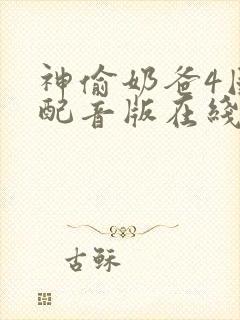 神偷奶爸4国
配音版在綫
古稣